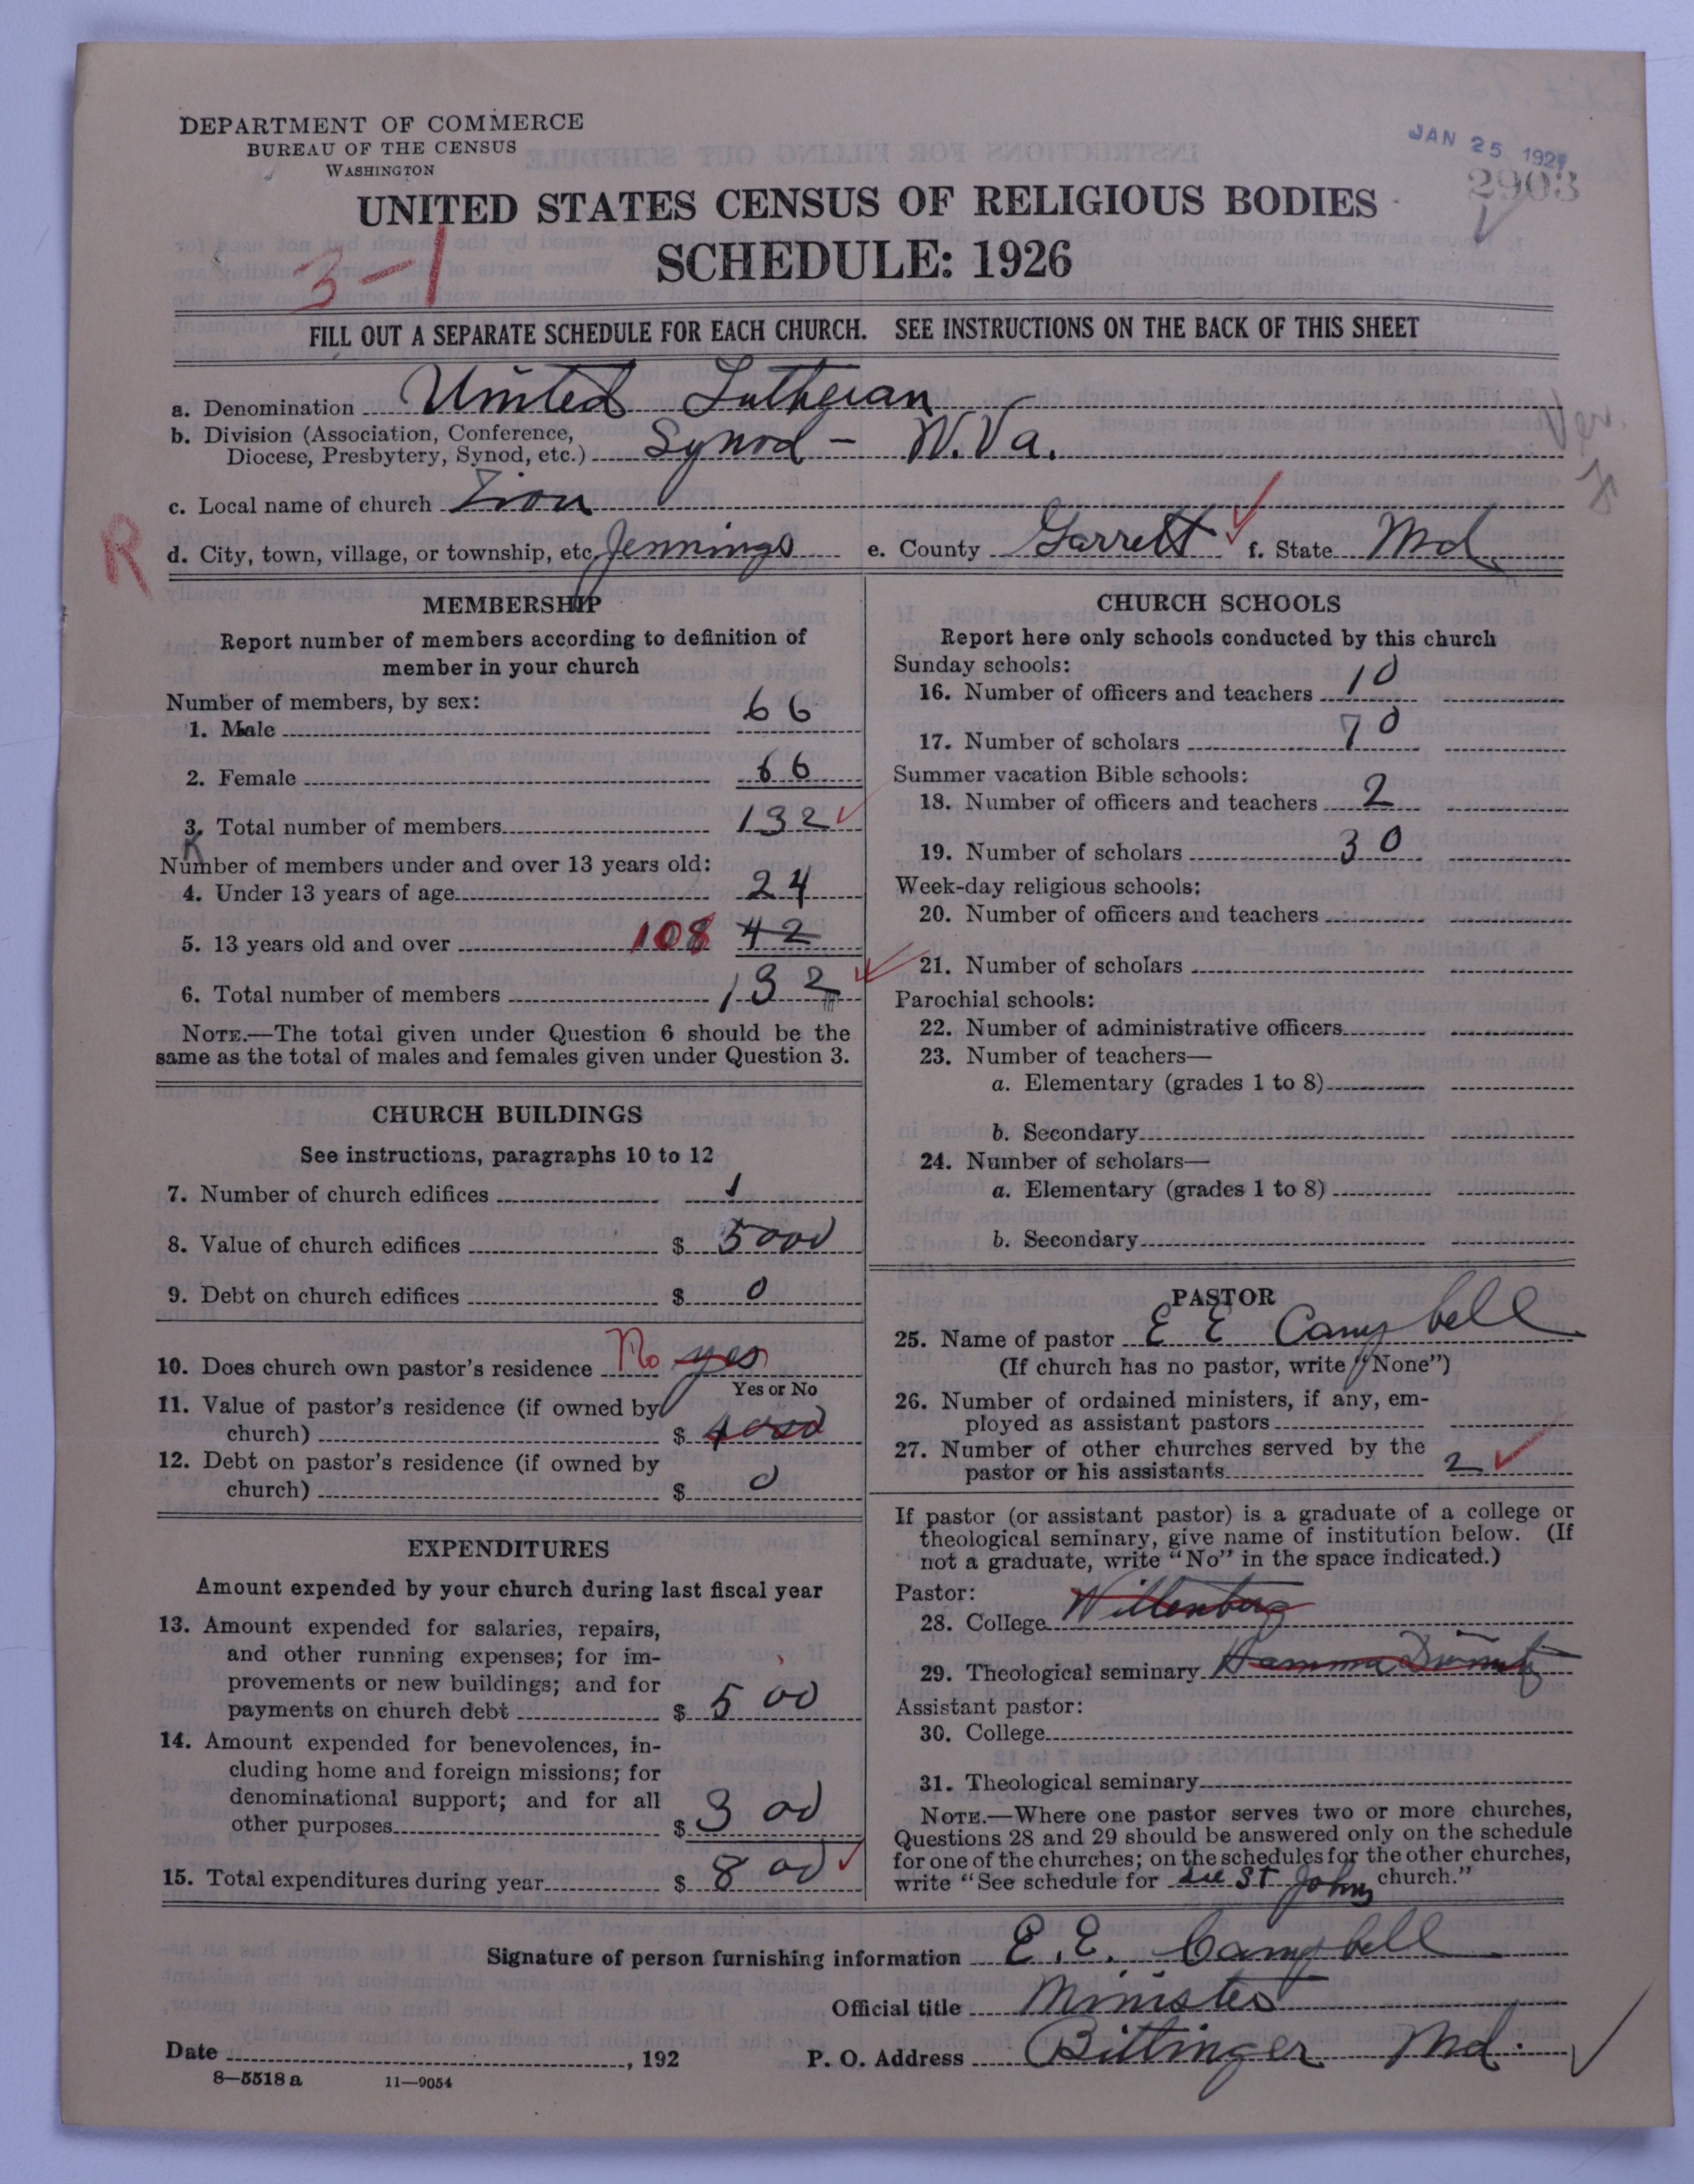 DEPARTMENT OF COMMERCE
BUREAU OF THE CENSUS
WASHINGTON
JAN 25 1927
2903
UNITED STATES CENSUS OF RELIGIOUS BODIES
SCHEDULE: 1926
3-1
FILL OUT A SEPARATE SCHEDULE FOR EACH CHURCH. SEE INSTRUCTIONS ON THE BACK OF THIS SHEET
a. Denomination United Lutheran
b. Division (Association, Conference,
Diocese, Presbytery, Synod, etc.) Synod - W. Va.
c. Local name of church Zion
R
d. City, town, village, or township, etc. Jennings e. County Garrett f. State Md.
MEMBERSHIP
Report number of members according to definition of
member in your church
Number of members, by sex:
1. Male 66
2. Female 66
3. Total number of members 132
Number of members under and over 13 years old:
4. Under 13 years of age 24
5. 13 years old and over 108 42
6. Total number of members 132
NOTE.—The total given under Question 6 should be the
same as the total of males and females given under Question 3.
CHURCH BUILDINGS
See instructions, paragraphs 10 to 12
7. Number of church edifices 1
8. Value of church edifices $ 5000
9. Debt on church edifices $ 0
10. Does church own pastor's residence No yes
Yes or No
11. Value of pastor's residence (if owned by
church) $ 4000
12. Debt on pastor's residence (if owned by
church) $ 0
EXPENDITURES
Amount expended by your church during last fiscal year
13. Amount expended for salaries, repairs,
and other running expenses; for im-
provements or new buildings; and for
payments on church debt $ 500
14. Amount expended for benevolences, in-
cluding home and foreign missions; for
denominational support; and for all
other purposes $ 300
15. Total expenditures during year $ 800
CHURCH SCHOOLS
Report here only schools conducted by this church
Sunday schools:
16. Number of officers and teachers 10
17. Number of scholars 70
Summer vacation Bible schools:
18. Number of officers and teachers 2
19. Number of scholars 30
Week-day religious schools:
20. Number of officers and teachers
21. Number of scholars
Parochial schools:
22. Number of administrative officers
23. Number of teachers—
a. Elementary (grades 1 to 8)
b. Secondary
24. Number of scholars—
a. Elementary (grades 1 to 8)
b. Secondary
PASTOR
25. Name of pastor E E Campbell
(If church has no pastor, write "None")
26. Number of ordained ministers, if any, em-
ployed as assistant pastors
27. Number of other churches served by the
pastor or his assistants 2
If pastor (or assistant pastor) is a graduate of a college or
theological seminary, give name of institution below. (If
not a graduate, write "No" in the space indicated.)
Pastor:
28. College Wittenberg
29. Theological seminary Hamma Divinity
Assistant pastor:
30. College
31. Theological seminary
NOTE.—Where one pastor serves two or more churches,
Questions 28 and 29 should be answered only on the schedule
for one of the churches; on the schedules for the other churches,
write "See schedule for see St Johns church."
Signature of person furnishing information E. E. Campbell
Official title Minister
Date , 192
P. O. Address Bittinger Md.
8—5518 a 11—9054